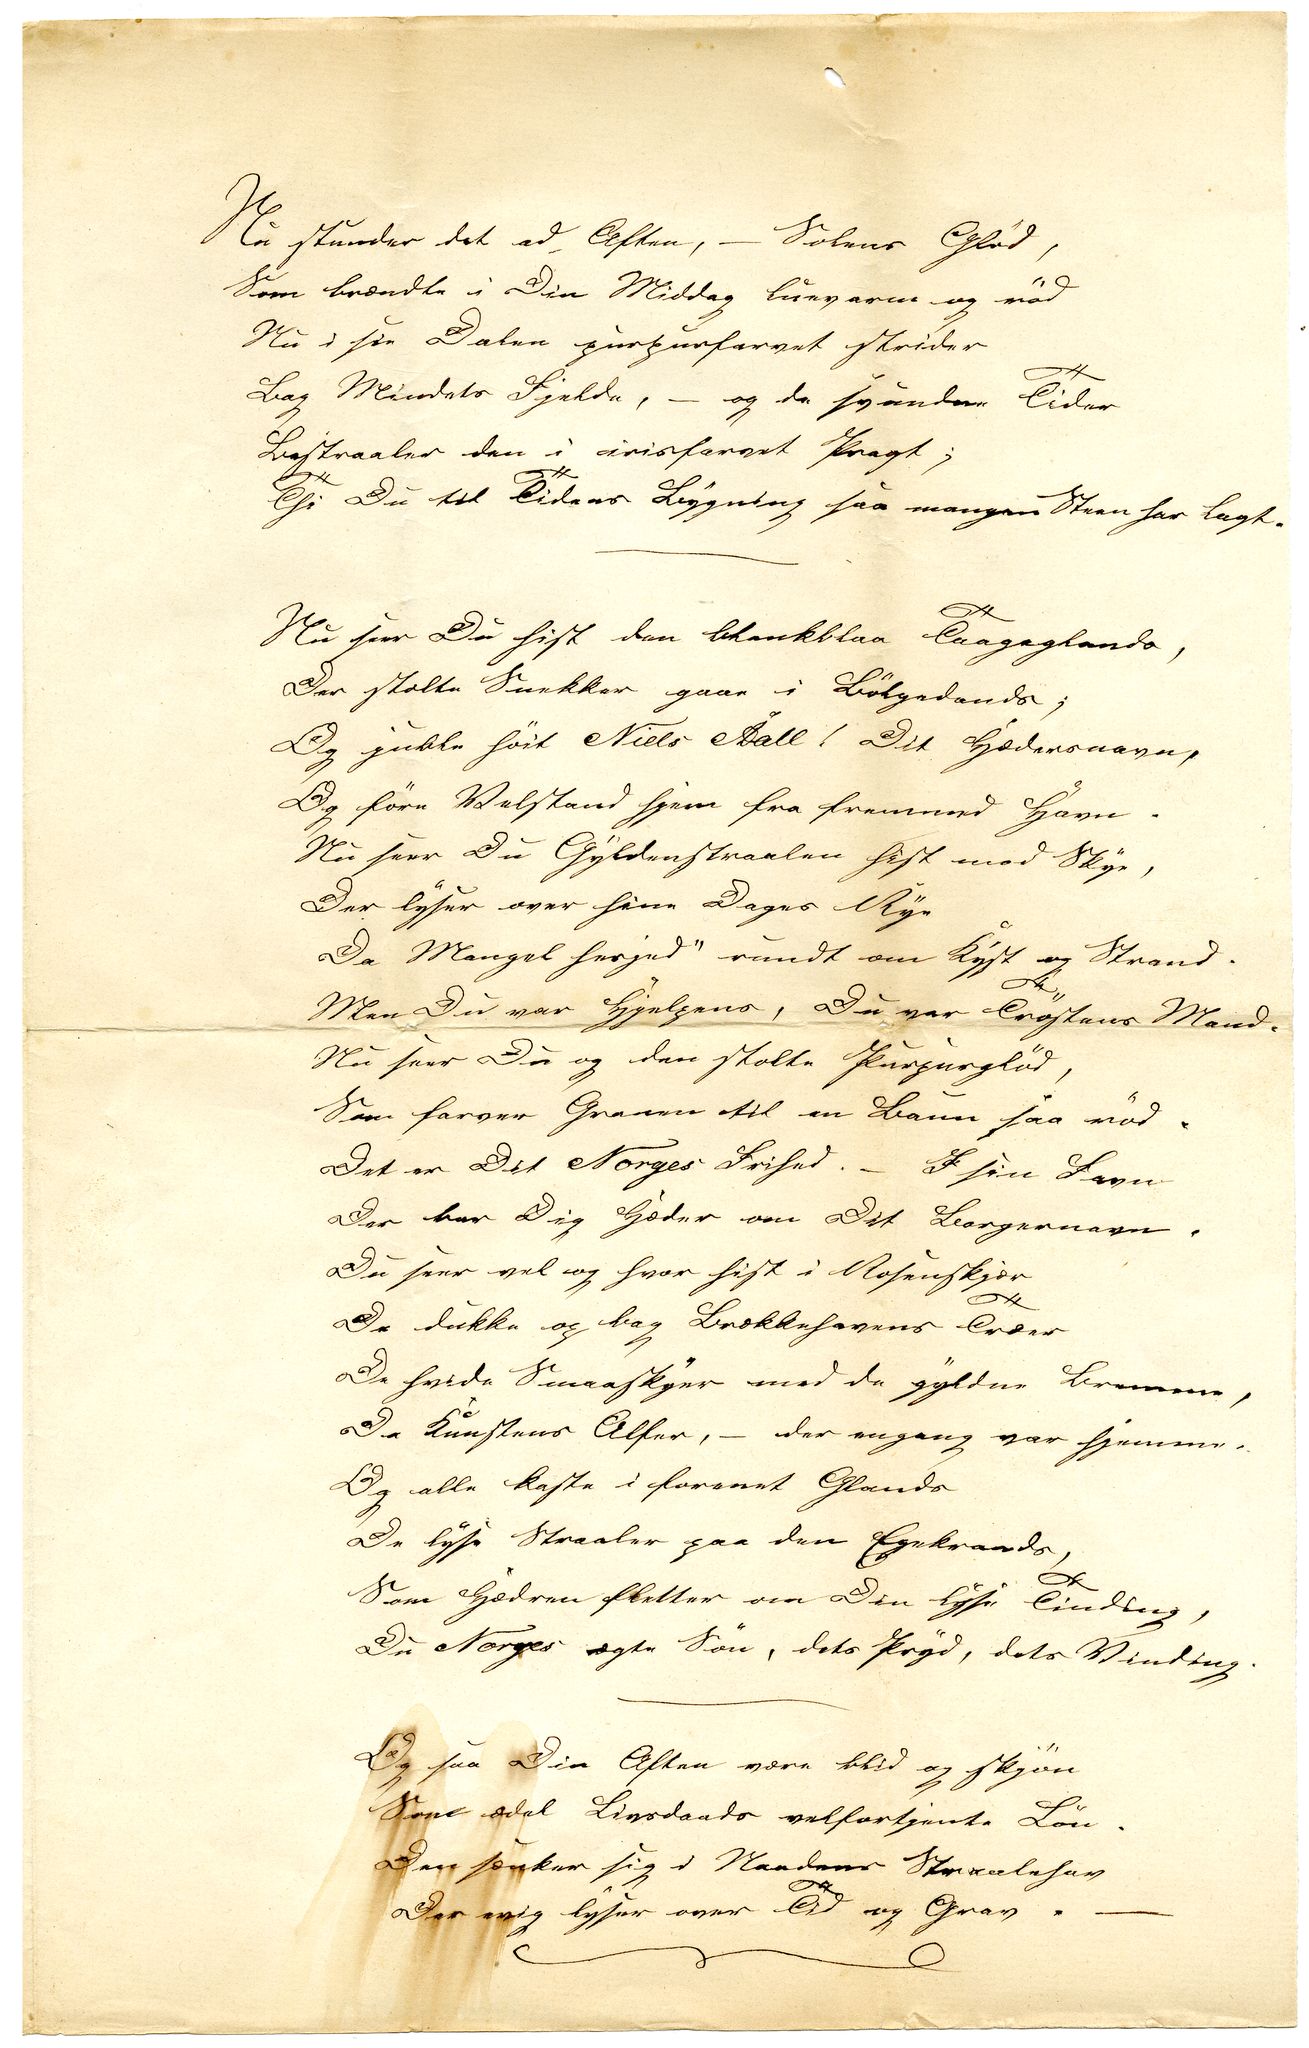 Nu stunder det ad Aften, — Solens Glöd,
Som brændte i Din Middag luevarm og röd
Nu i sin Dalen purpurfarvet strider
Bag Mindets Fjelde, — og de svundne Tider
Bestraaler den i irisfarvet Pragt;
Thi Du til Tidens Bÿgning saa mangen Steen har lagt.
Nu seer Du hist den blankblaa Taageglands,
Der stolte Snekker gaae i Bölgedands;
Og juble höit Niels Aall! Dit Hædersnavn,
Og före Velstand hjem fra fremmed Havn.
Nu seer Du Gÿldenstraalen hist mod Skÿe,
Der lÿser over hine Dages Rÿe
Da Mangel herjed" rundt om Kÿst og Strand.
Men Du var Hjelpens, Du var Tröstens Mand.
Nu seer Du og den stolte Purpurglöd,
Som farver Granen til en Baun saa röd.
Det er Dit Norges Frihed. — I sin Favn
Der bar Dig Hæder om Dit Borgernavn.
Du seer vel og hvor hist i Rosenskjær
De dukke op bag Brækkehavens Træer
De hvide Smaaskÿer med de gÿldne Bremme,
De Kunstens Alfer, — der engang var hjemme.
Og alle kaste i forenet Glands
De lÿse Straaler paa den Egekrands,
Som Hædren fletter om Din lÿse Tinding,
Du Norges ægte Sön, dets Prÿd, dets Vinding.
Og saa Din Aften være blid og skjön
Som ædel Livsdaads velfortjente Lön.
Den sænker sig i Naadens Straalehav
Der evig lÿser over Tid og Grav. —